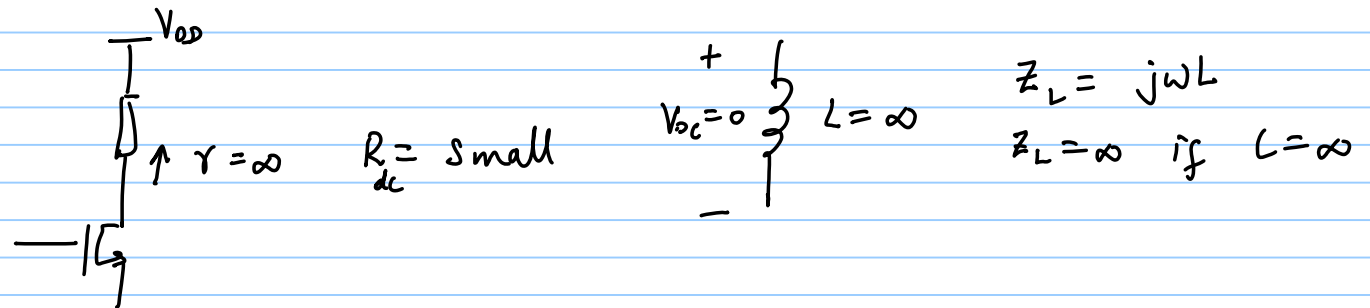 V_DD
r = ∞
R_dc = small
+
V_DC = 0
L = ∞
−
Z_L = jωL
Z_L = ∞ if L = ∞